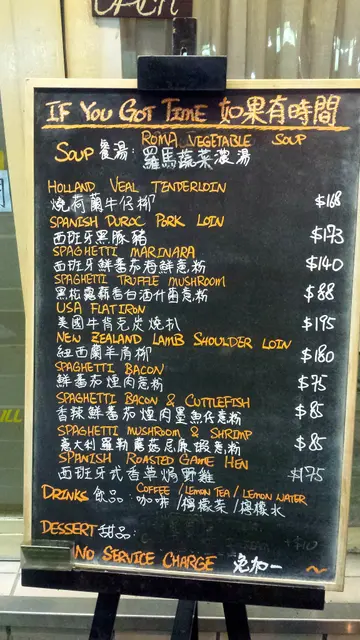 OPEN
IF YOU GOT TIME 如果有時間
ROMA VEGETABLE SOUP
SOUP 餐湯: 羅馬蔬菜濃湯
HOLLAND VEAL TENDERLOIN
燒荷蘭牛仔柳 $168
SPANISH DUROC PORK LOIN
西班牙黑豚豬 $173
SPAGHETTI MARINARA
西班牙鮮番茄海鮮意粉 $140
SPAGHETTI TRUFFLE MUSHROOM
黑松露蘑香白酒什菌意粉 $88
USA FLAT IRON
美國牛肩胛炭燒扒 $195
NEW ZEALAND LAMB SHOULDER LOIN
紐西蘭羊肩柳 $180
SPAGHETTI BACON
鮮番茄煙肉意粉 $75
SPAGHETTI BACON & CUTTLEFISH
香辣鮮番茄煙肉墨魚仔意粉 $85
SPAGHETTI MUSHROOM & SHRIMP
意大利羅勒蘑菇忌廉蝦意粉 $85
SPANISH ROASTED GAME HEN
西班牙式香草焗野雞 $175
COFFEE / LEMON TEA / LEMON WATER
DRINKS 飲品: 咖啡 / 檸檬茶 / 檸檬水
DESSERT 甜品: +$10
NO SERVICE CHARGE 免加一 ~